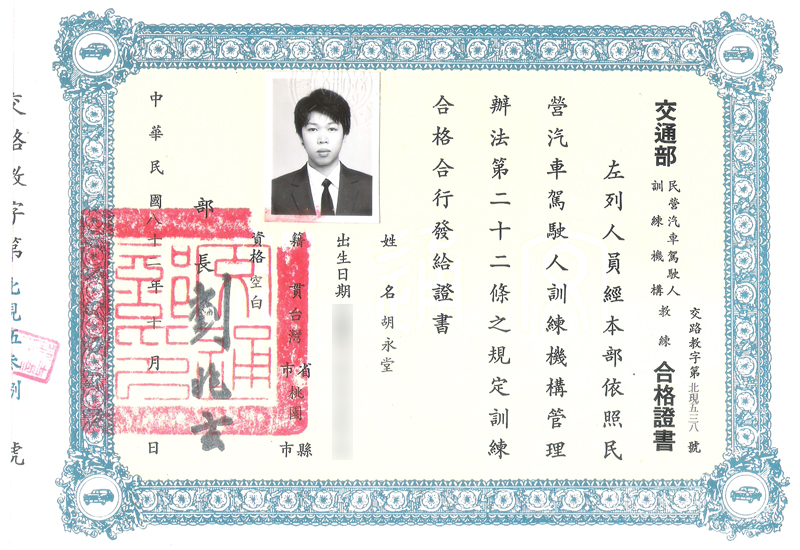 交通部 民營汽車駕駛人訓練機構教練 合格證書
交路教字第北現五三八號
左列人員經本部依照民
營汽車駕駛人訓練機構管理
辦法第二十二條之規定訓練
合格合行發給證書
姓名胡永堂
出生日期
籍貫台灣省桃園縣
市市
資格空白
部長劉兆玄
中華民國八十二年十月 日
交路教字第北現伍叁捌號